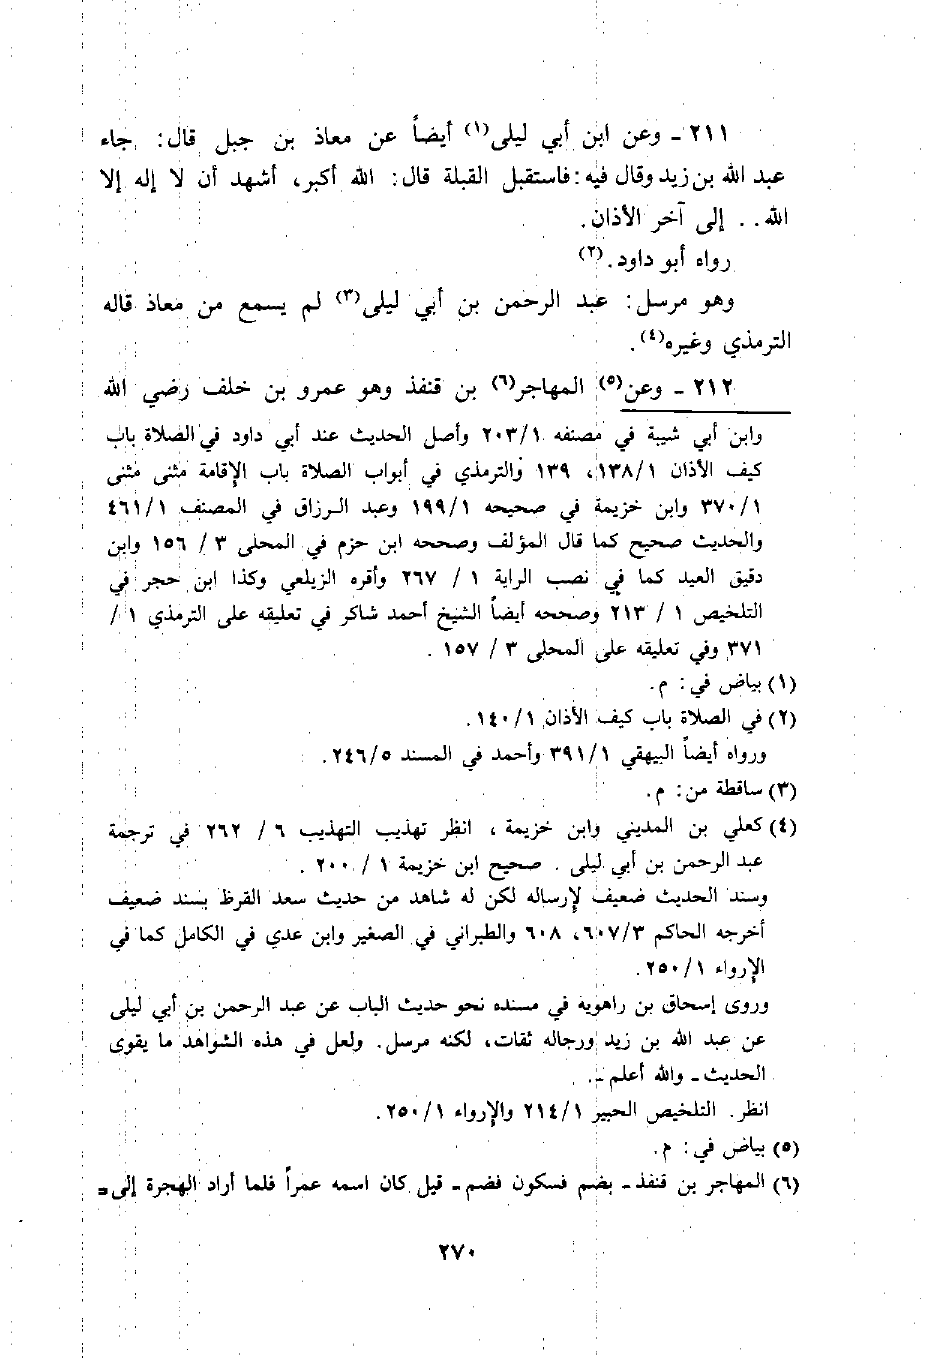 ٢١١ ـ وعن ابن أبي ليلى(١) أيضاً عن معاذ بن جبل قال: جاء
عبد الله بن زيد وقال فيه: فاستقبل القبلة قال: الله أكبر، أشهد أن لا إله إلا
الله.. إلى آخر الأذان.
رواه أبو داود.(٢)
وهو مرسل: عبد الرحمن بن أبي ليلى(٣) لم يسمع من معاذ قاله
الترمذي وغيره(٤).
٢١٢ ـ وعن(٥) المهاجر(٦) بن قنفذ وهو عمرو بن خلف رضي الله
وابن أبي شيبة في مصنفه ٢٠٣/١ وأصل الحديث عند أبي داود في الصلاة باب
كيف الأذان ١٣٨/١، ١٣٩ والترمذي في أبواب الصلاة باب الإقامة مثنى مثنى
٣٧٠/١ وابن خزيمة في صحيحه ١٩٩/١ وعبد الرزاق في المصنف ٤٦١/١
والحديث صحيح كما قال المؤلف وصححه ابن حزم في المحلى ٣ / ١٥٦ وابن
دقيق العيد كما في نصب الراية ١ / ٢٦٧ وأقره الزيلعي وكذا ابن حجر في
التلخيص ١ / ٢١٣ وصححه أيضاً الشيخ أحمد شاكر في تعليقه على الترمذي ١ /
٣٧١ وفي تعليقه على المحلى ٣ / ١٥٧ .
(١) بياض في: م.
(٢) في الصلاة باب كيف الأذان ١٤٠/١.
ورواه أيضاً البيهقي ٣٩١/١ وأحمد في المسند ٢٤٦/٥.
(٣) ساقطة من: م.
(٤) كعلي بن المديني وابن خزيمة ، انظر تهذيب التهذيب ٦ / ٢٦٢ في ترجمة
عبد الرحمن بن أبي ليلى . صحيح ابن خزيمة ١ / ٢٠٠ .
وسند الحديث ضعيف لإرساله لكن له شاهد من حديث سعد القرظ بسند ضعيف
أخرجه الحاكم ٦٠٧/٣، ٦٠٨ والطبراني في الصغير وابن عدي في الكامل كما في
الإرواء ٢٥٠/١.
وروى إسحاق بن راهويه في مسنده نحو حديث الباب عن عبد الرحمن بن أبي ليلى
عن عبد الله بن زيد ورجاله ثقات، لكنه مرسل. ولعل في هذه الشواهد ما يقوى
الحديث ـ والله أعلم ـ.
انظر. التلخيص الحبير ٢١٤/١ والإرواء ٢٥٠/١.
(٥) بياض في: م.
(٦) المهاجر بن قنفذ ـ بضم فسكون فضم ـ قيل كان اسمه عمراً فلما أراد الهجرة إلى=
٢٧٠